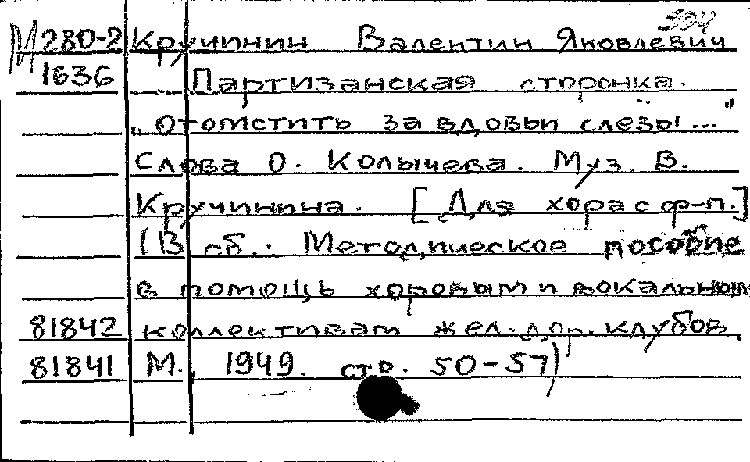 394
М 280-2 Кручинин Валентин Яковлевич
1636 Партизанская сторонка.
„Отомстить за вдовьи слезы..."
Слова О. Колычева. Муз. В.
Кручинина. [Для хора с ф-п.]
(В сб.: Методическое пособие
в помощь хоровым и вокальным
81842 коллективам жел.-дор. клубов,
81841 М., 1949. стр. 50-57)